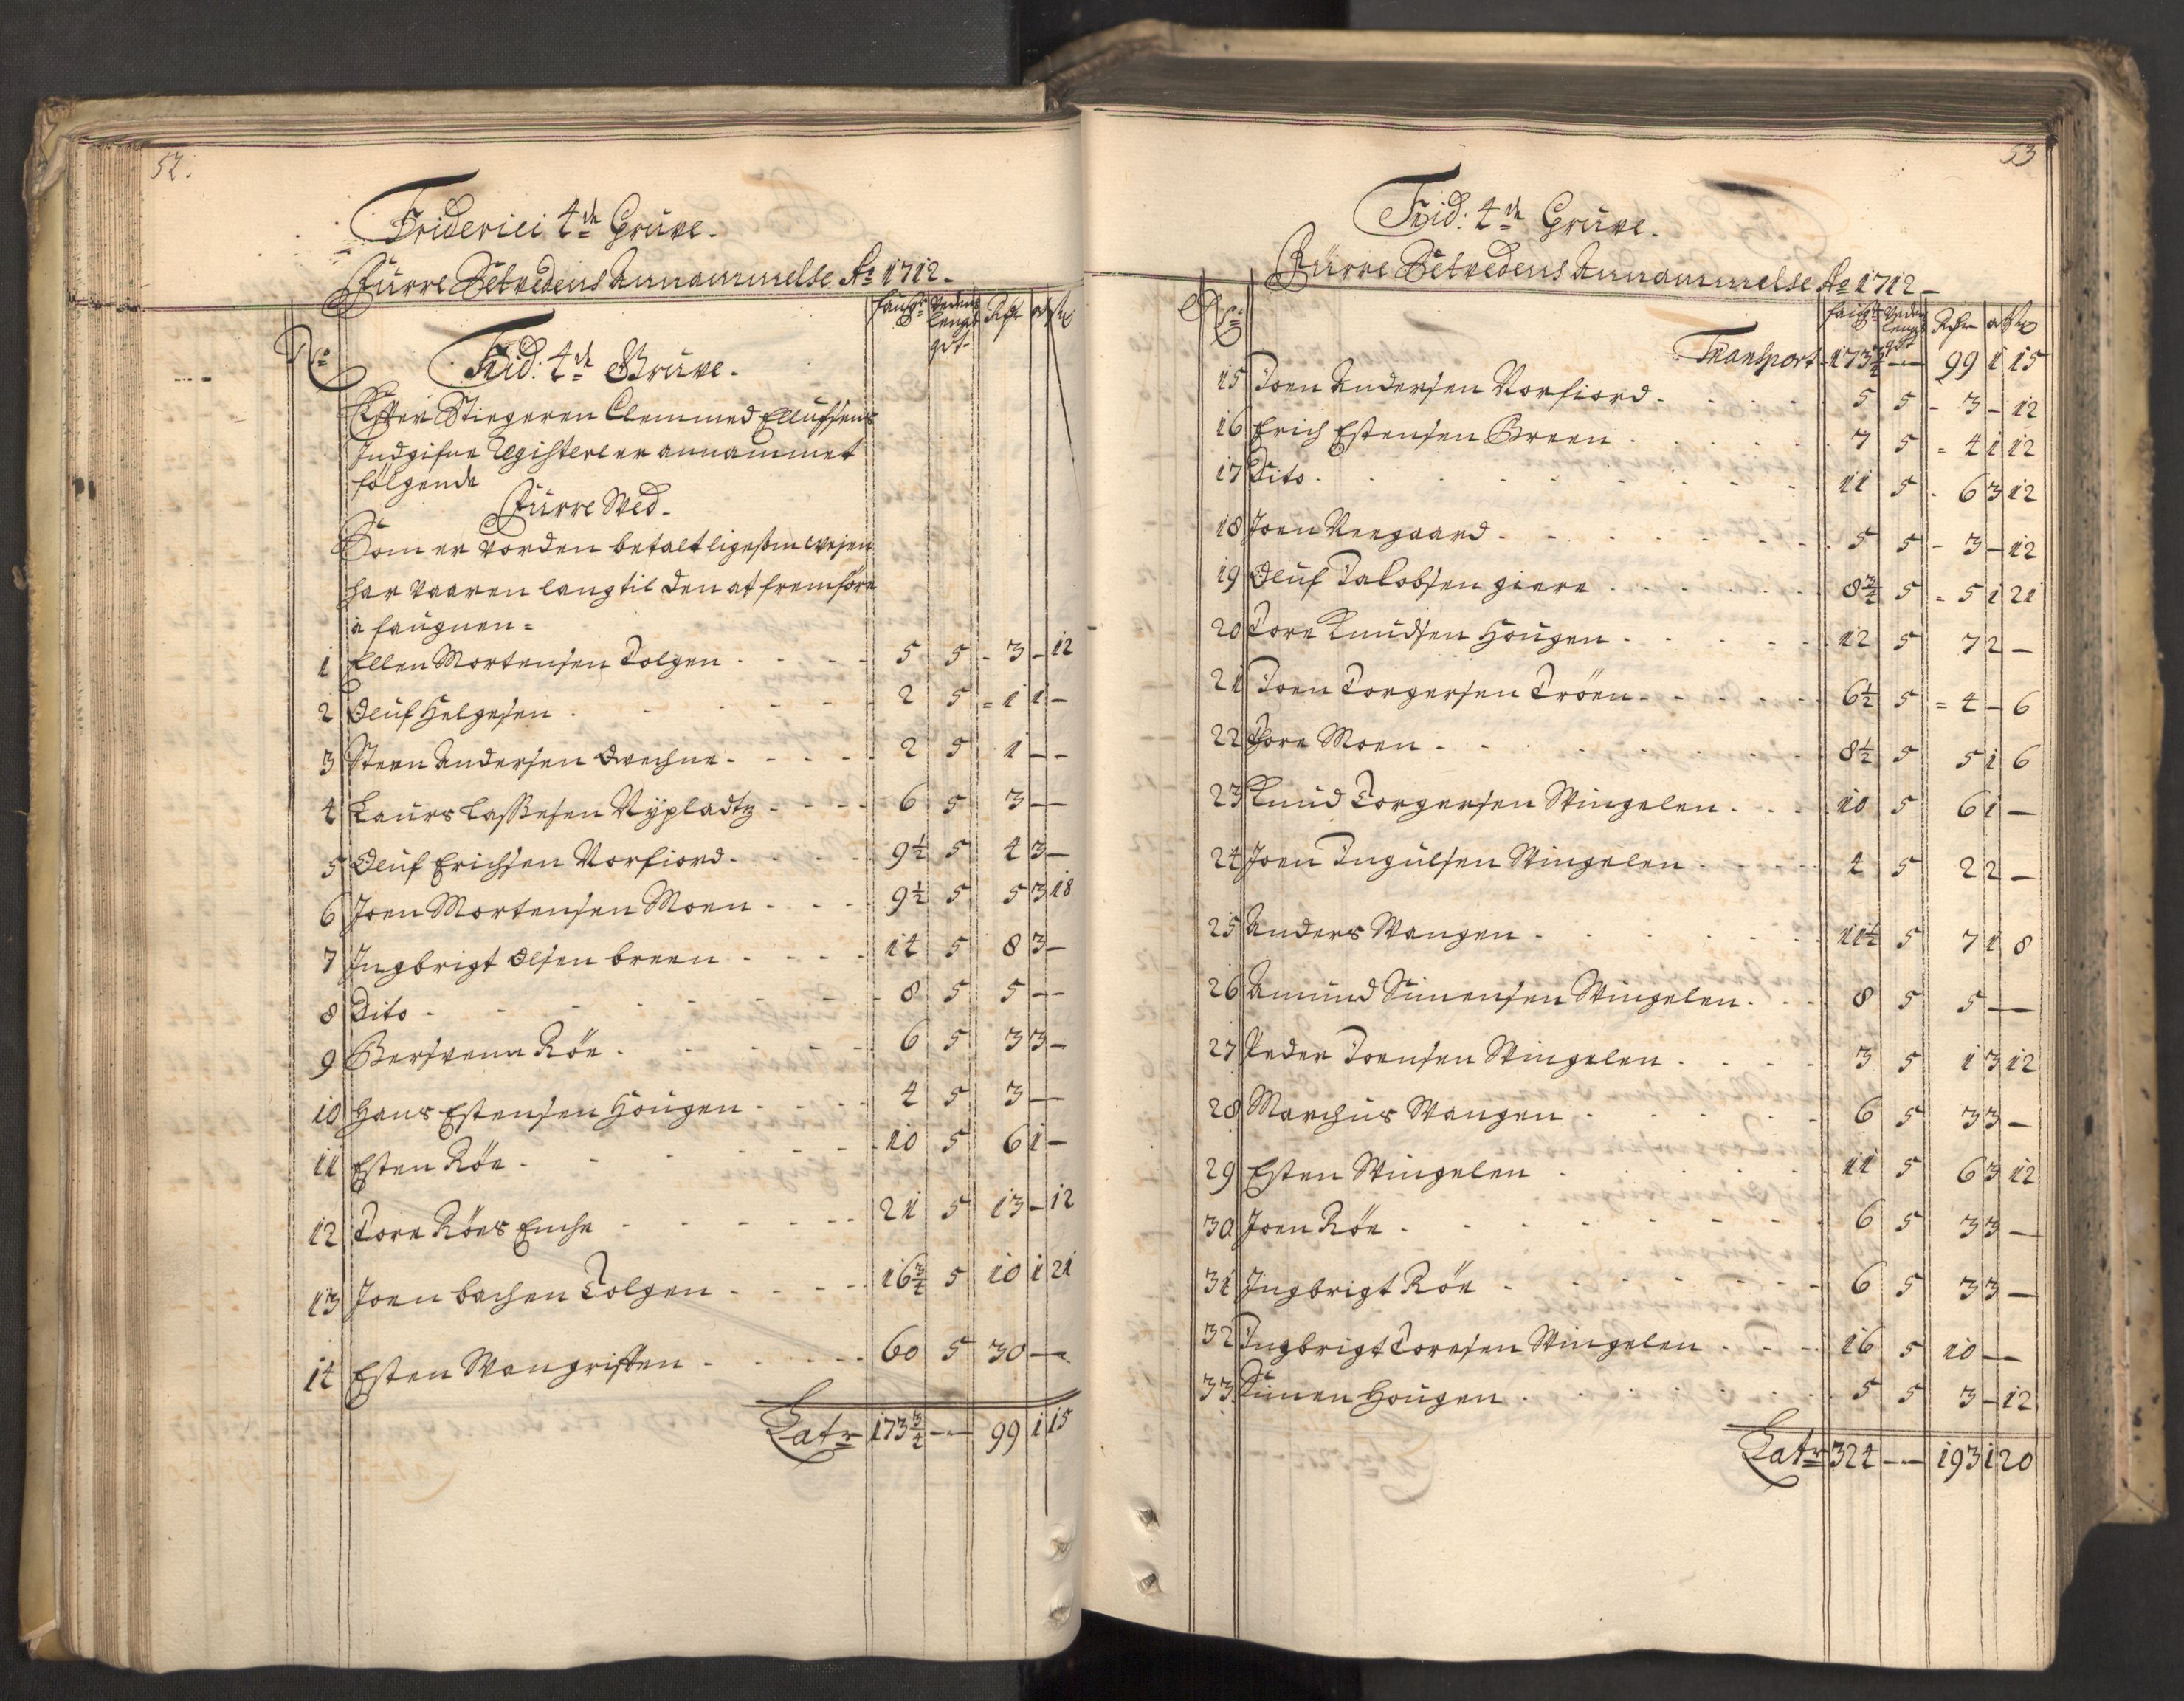 52.
Friderici 4de Gruve.
Furre Setvedens Annammelse Ao 1712.
No faugr Vedens lengd qvt Rdr ort s
Frid: 4de Gruve.
Efter Stigeren Clemmed Ellufsens
Indgifne Registere er annammet
følgende
Furre Wed.
Som er vorden betalt ligesom Vejen
har vaaren lang til den at fremføre
a faugnen =
1 Ellen Mortensen Tolgen 5 5 - 3 - 12
2 Oluf Helgesen 2 5 = 1 1 -
3 Steen Andersen 2 5 1 - -
4 Laurs Lassesen Nÿpladtz 6 5 3 - -
5 Oluf Erichsen Narfiord 9½ 5 4 3 -
6 Joen Mortensen Moen 9½ 5 5 3 18
7 Ingbrigt Olsen breen 14 5 8 3 -
8 Dito 8 5 5 - -
9 Bersvenn Röe 6 5 3 3 -
10 Hans Estensen Hougen 4 5 3 - -
11 Esten Röe 10 5 6 1 -
12 Tore Röes Enche 21 5 13 - 12
13 Joen bachen Tolgen 16¾ 5 10 1 21
14 Esten Wangristen 60 5 30 - -
Latr 173¾ - - 99 1 15
53
Frid: 4de Gruve.
Furre Setvedens Annammelse Ao 1712
No faugr Vedens lengd qvt Rdr ort s
Transport 173¾ - - 99 1 15
15 Joen Andersen Narfiord 5 5 - 3 - 12
16 Erich Estensen Breen 7 5 = 4 1 12
17 Dito 11 5 - 6 3 12
18 Joen Neegaard 5 5 - 3 - 12
19 Oluf Jacobsen giere 8¾ 5 = 5 1 21
20 Tore Knudsen Hougen 12 5 7 2 -
21 Joen Torgersen Tröen 6½ 5 = 4 - 6
22 Tore Moen 8½ 5 5 1 6
23 Knud Torgersen Wingelen 10 5 6 1 -
24 Joen Ingulsen Wingelen 4 5 2 2 -
25 Anders Wangen 11½ 5 7 1 8
26 Amund Simensen Wingelen 8 5 5 - -
27 Peder Joensen Wingelen 3 5 1 3 12
28 Marchus Wangen 6 5 3 3 -
29 Esten Wingelen 11 5 6 3 12
30 Joen Röe 6 5 3 3 -
31 Ingbrigt Röe 6 5 3 3 -
32 Ingbrigt Toresen Wingelen 16 5 10 - -
33 Simen Hougen 5 5 3 - 12
Latr 324 - - 193 1 20